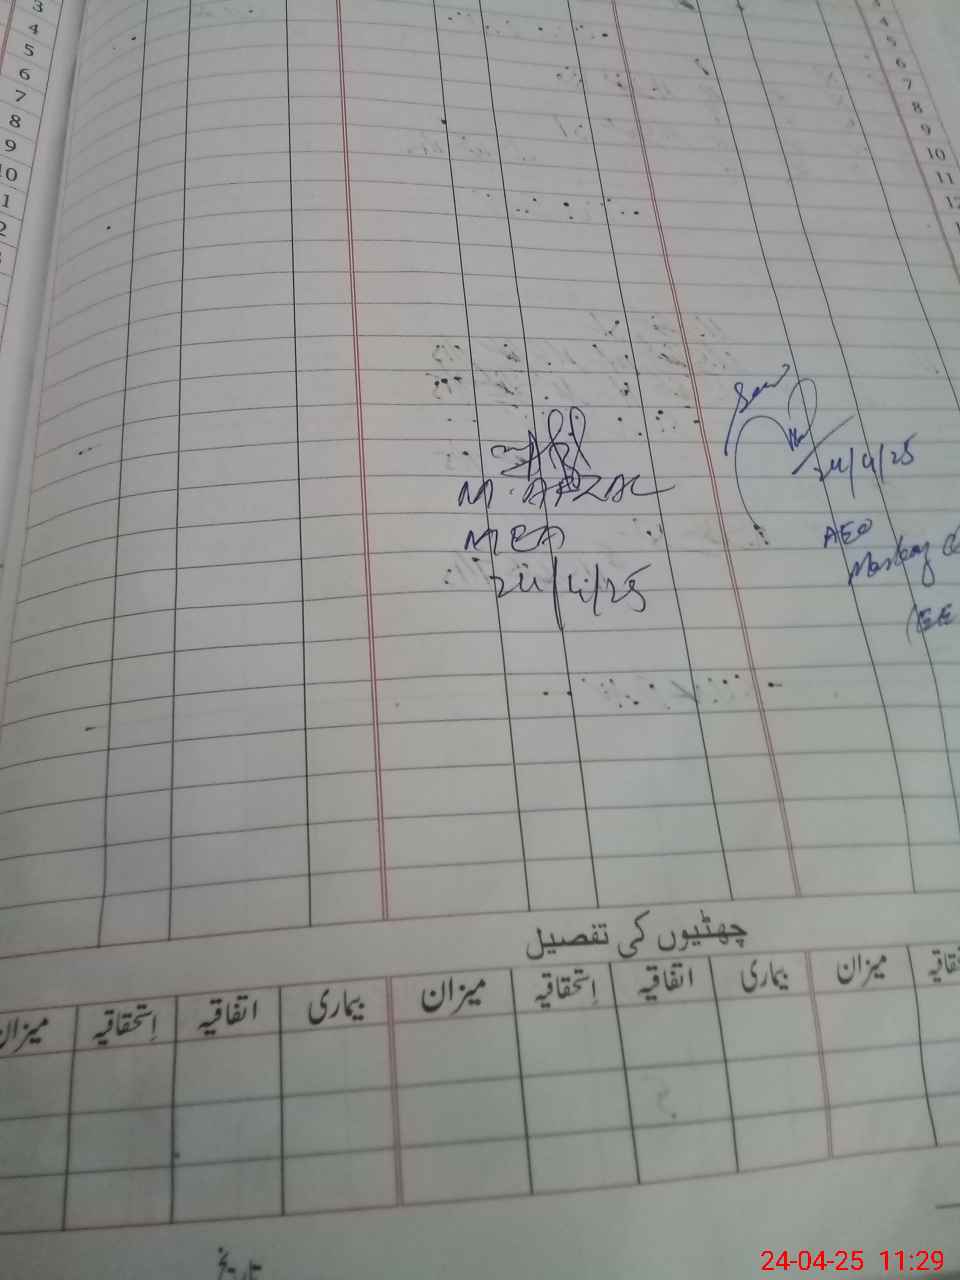 3
4
5
6
7
8
9
10
4
5
6
7
8
9
10
11
12
M. AFZAL
MEA
24/4/25
24/4/25
AEO
Markaz
(EE
چھٹیوں کی تفصیل
میزان اِستحقاقیہ اتفاقیہ بیماری میزان اِستحقاقیہ اتفاقیہ بیماری میزان
تاریخ
24-04-25 11:29